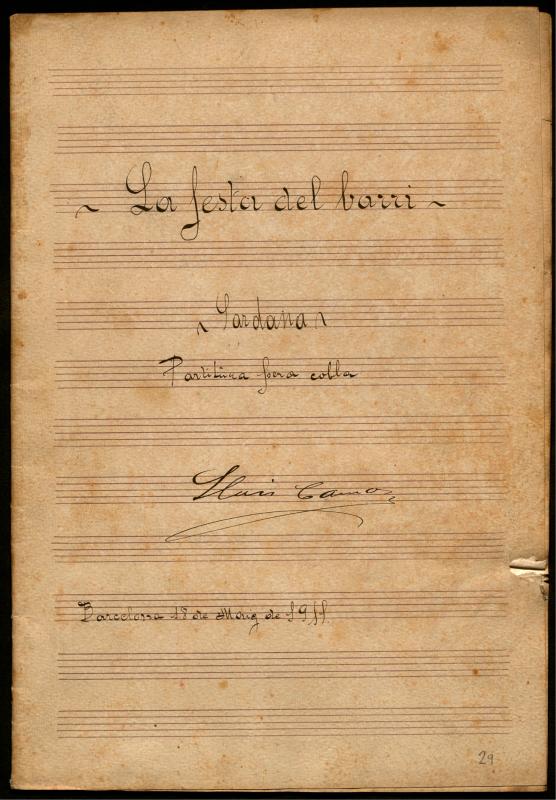 ~ La festa del barri ~
~ Sardana ~
Partitura pera cobla
Lluis Camos
Barcelona 18 de Maig de 1911.
29